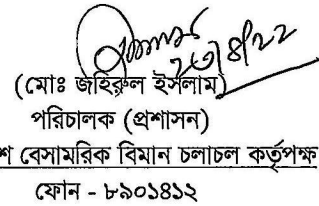 ২৬/৪/২২
(মোঃ জহিরুল ইসলাম)
পরিচালক (প্রশাসন)
শ বেসামরিক বিমান চলাচল কর্তৃপক্ষ
ফোন - ৮৯০১৪১২